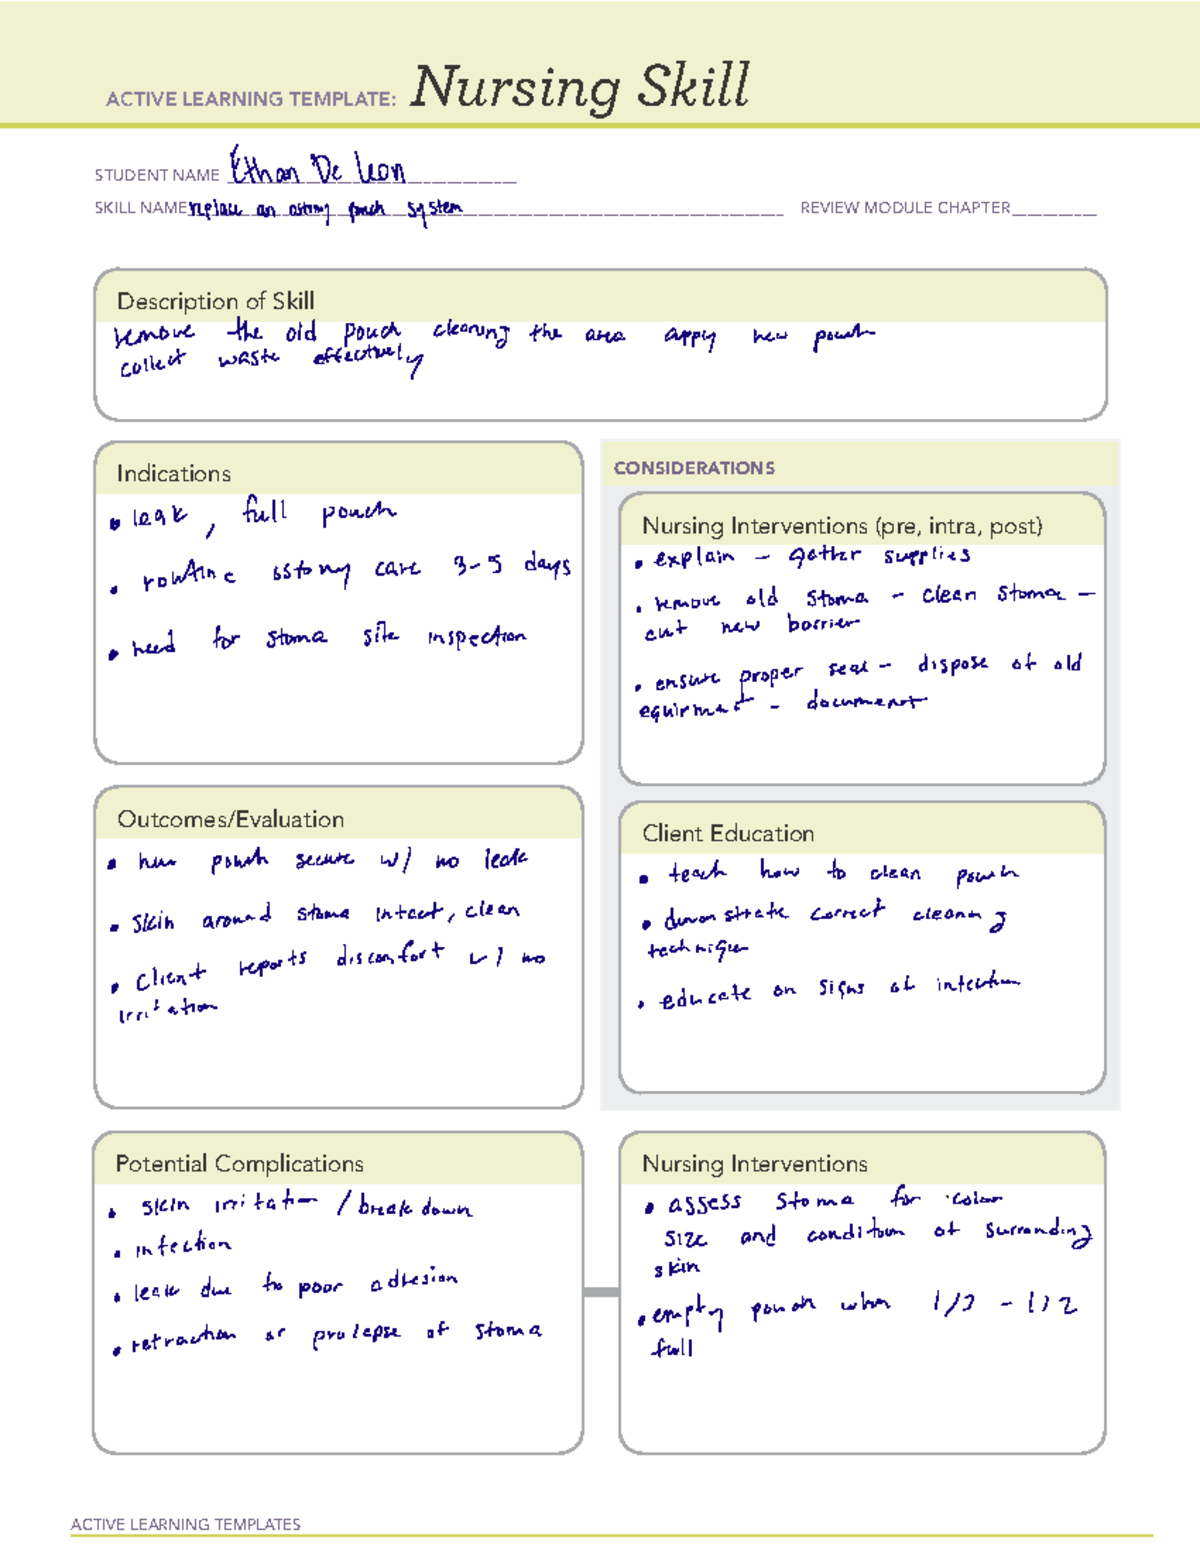 ACTIVE LEARNING TEMPLATE: Nursing Skill
STUDENT NAME Ethan De Leon
SKILL NAME replace an ostomy pouch system REVIEW MODULE CHAPTER
Description of Skill
remove the old pouch cleaning the area apply new pouch
collect waste effectively
Indications
• leak, full pouch
• routine ostomy care 3-5 days
• need for stoma site inspection
CONSIDERATIONS
Nursing Interventions (pre, intra, post)
• explain - gather supplies
• remove old stoma - clean stoma -
cut new barrier
• ensure proper seal - dispose of old
equirment - document
Outcomes/Evaluation
• new pouch secure w/ no leak
• skin around stoma intact, clean
• client reports discomfort w/ no
irritation
Client Education
• teach how to clean pouch
• demonstrate correct cleaning
technique
• educate on signs of infection
Potential Complications
• skin irritation / breakdown
• infection
• leak due to poor adhesion
• retraction or prolapse of stoma
Nursing Interventions
• assess stoma for color
size and condition of surrounding
skin
• empty pouch when 1/3 - 1/2
full
ACTIVE LEARNING TEMPLATES